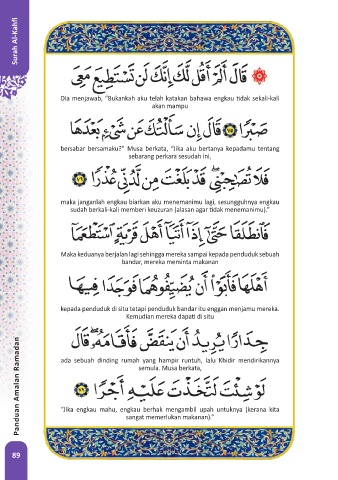 Surah Al-Kahfi
۞ قَالَ أَلَمْ أَقُل لَّكَ إِنَّكَ لَن تَسْتَطِيعَ مَعِيَ
Dia menjawab, "Bukankah aku telah katakan bahawa engkau tidak sekali-kali
akan mampu
صَبْرًا ٧٥ قَالَ إِن سَأَلْتُكَ عَن شَيْءٍۭ بَعْدَهَا
bersabar bersamaku?" Musa berkata, "Jika aku bertanya kepadamu tentang
sebarang perkara sesudah ini,
فَلَا تُصَٰحِبْنِى ۖ قَدْ بَلَغْتَ مِن لَّدُنِّى عُذْرًا ٧٦
maka janganlah engkau biarkan aku menemanimu lagi, sesungguhnya engkau
sudah berkali-kali memberi keuzuran (alasan agar tidak menemanimu)."
فَٱنطَلَقَا حَتَّىٰٓ إِذَآ أَتَيَآ أَهْلَ قَرْيَةٍ ٱسْتَطْعَمَآ
Maka keduanya berjalan lagi sehingga mereka sampai kepada penduduk sebuah
bandar, mereka meminta makanan
أَهْلَهَا فَأَبَوْا۟ أَن يُضَيِّفُوهُمَا فَوَجَدَا فِيهَا
kepada penduduk di situ tetapi penduduk bandar itu enggan menjamu mereka.
Kemudian mereka dapati di situ
جِدَارًا يُرِيدُ أَن يَنقَضَّ فَأَقَامَهُۥ ۖ قَالَ
ada sebuah dinding rumah yang hampir runtuh, lalu Khidir mendirikannya
semula. Musa berkata,
لَوْ شِئْتَ لَتَّخَذْتَ عَلَيْهِ أَجْرًا ٧٧
"Jika engkau mahu, engkau berhak mengambil upah untuknya (kerana kita
sangat memerlukan makanan)."
Panduan Amalan Ramadan
89